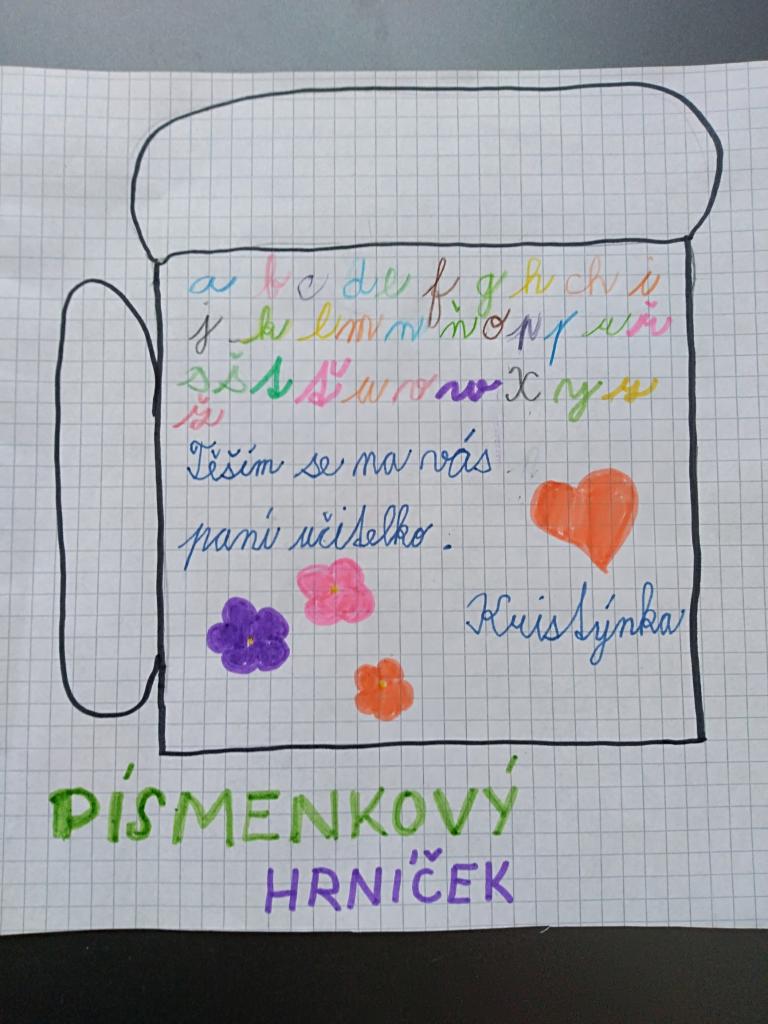 a b c d e f g h ch i
j k l m n ň o p r r ř
s š t ť u v w x y z
ž
Těším se na vás
paní učitelko.
Kristýnka
PÍSMENKOVÝ
HRNÍČEK